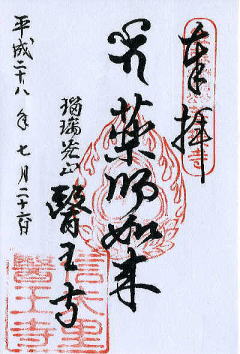 奉拝
薬師如来
瑠璃光山
醫王寺
平成二十八年七月二十六日
信夫里
醫王寺